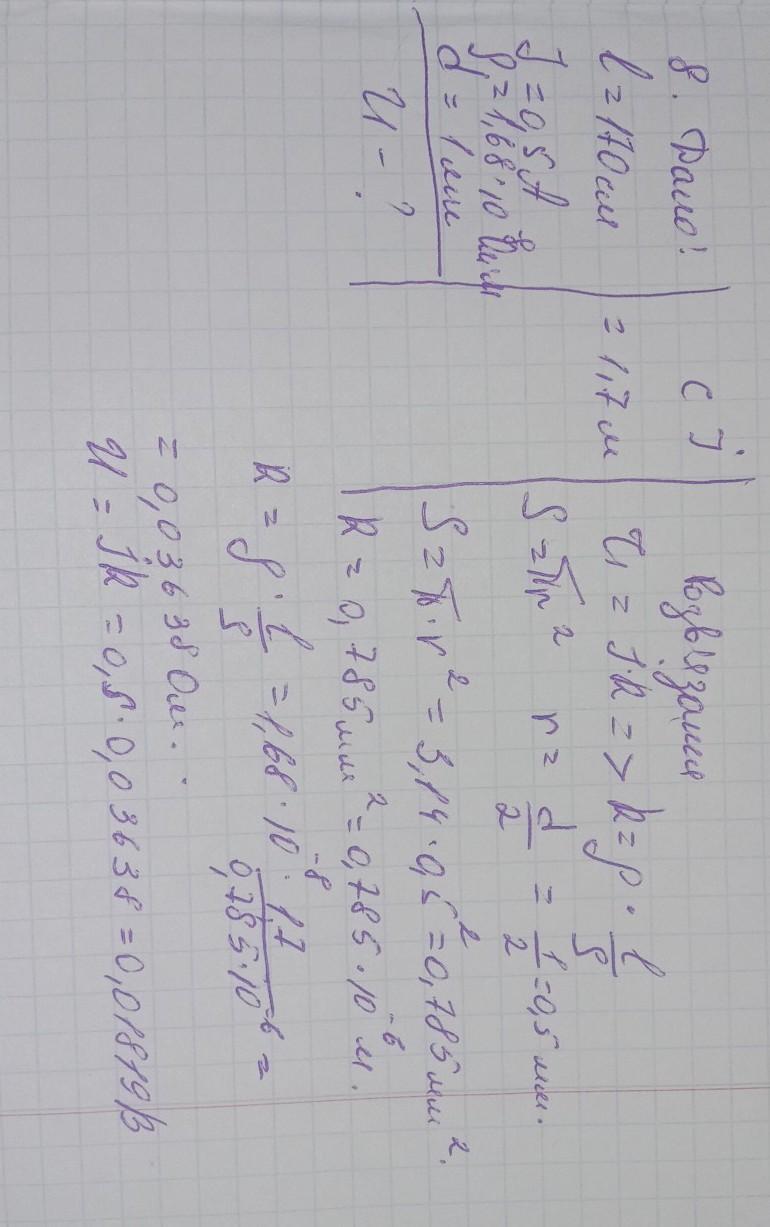 8. Дано:
l = 170 см
J = 0,5 А
ρ = 1,68 · 10⁻⁸ Ом·м
d = 1 мм
U - ?
СІ
= 1,7 м
Розв'язання
U = J·R => R = ρ · l/S
S = πr² r = d/2 = 1/2 = 0,5 мм.
S = π · r² = 3,14 · 0,5² = 0,785 мм².
R = 0,785 мм² = 0,785 · 10⁻⁶ м.
R = ρ · l/S = 1,68 · 10⁻⁸ · 1,7/0,785·10⁻⁶ =
= 0,03638 Ом.
U = JR = 0,5 · 0,03638 = 0,01819 В